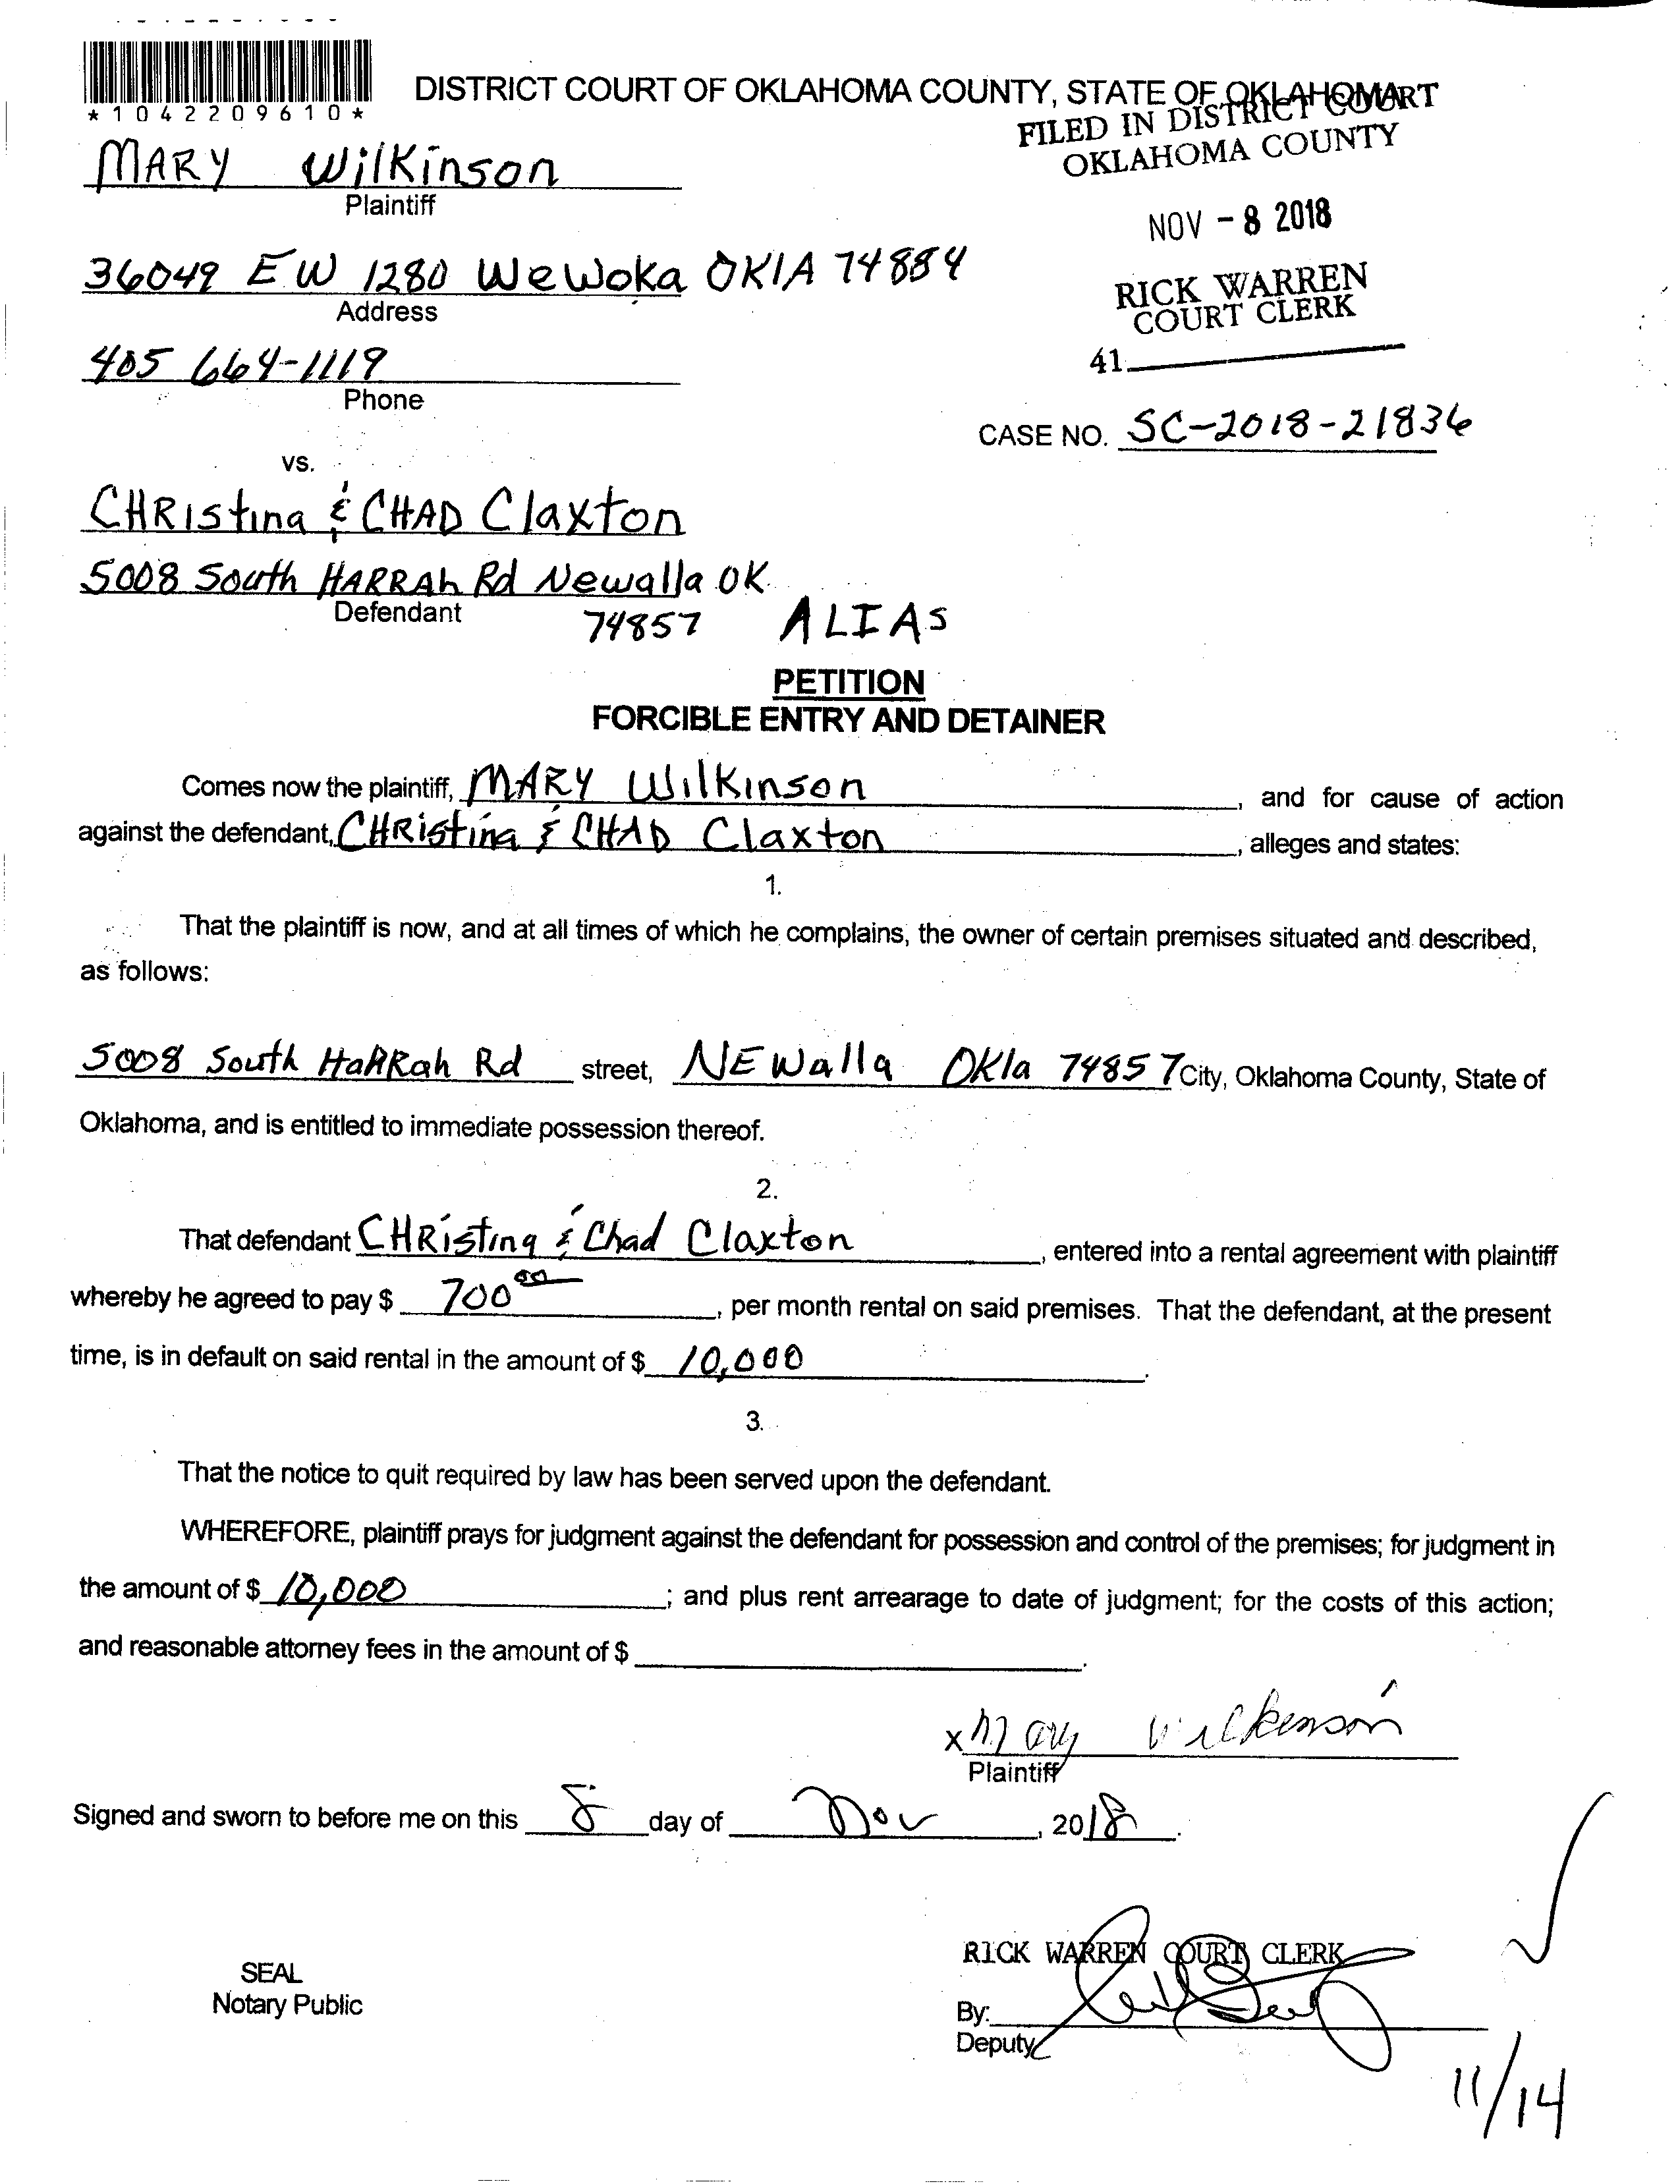 DISTRICT COURT OF OKLAHOMA COUNTY, STATE OF OKLAHOMA
*1042209610*
FILED IN DISTRICT COURT
OKLAHOMA COUNTY
MARY Wilkinson
Plaintiff
NOV - 8 2018
36049 EW 1280 Wewoka OKlA 74884
Address
RICK WARREN
COURT CLERK
405 664-1119
Phone
41
CASE NO. SC-2018-21836
vs.
CHRistina & CHAD Claxton
5008 South HARRAh Rd Newalla OK
Defendant
74857 ALIAS
PETITION
FORCIBLE ENTRY AND DETAINER
Comes now the plaintiff, MARY Wilkinson, and for cause of action
against the defendant, CHRistina & CHAD Claxton, alleges and states:
1.
That the plaintiff is now, and at all times of which he complains, the owner of certain premises situated and described,
as follows:
5008 South HaRRah Rd street, NEwalla OKla 74857 City, Oklahoma County, State of
Oklahoma, and is entitled to immediate possession thereof.
2.
That defendant CHRistina & Chad Claxton, entered into a rental agreement with plaintiff
whereby he agreed to pay $ 700 00, per month rental on said premises. That the defendant, at the present
time, is in default on said rental in the amount of $ 10,000.
3.
That the notice to quit required by law has been served upon the defendant.
WHEREFORE, plaintiff prays for judgment against the defendant for possession and control of the premises; for judgment in
the amount of $ 10,000; and plus rent arrearage to date of judgment; for the costs of this action;
and reasonable attorney fees in the amount of $ .
x Mary Wilkenson
Plaintiff
Signed and sworn to before me on this 8 day of Nov, 2018.
RICK WARREN COURT CLERK
SEAL
Notary Public
By:
Deputy
11/14